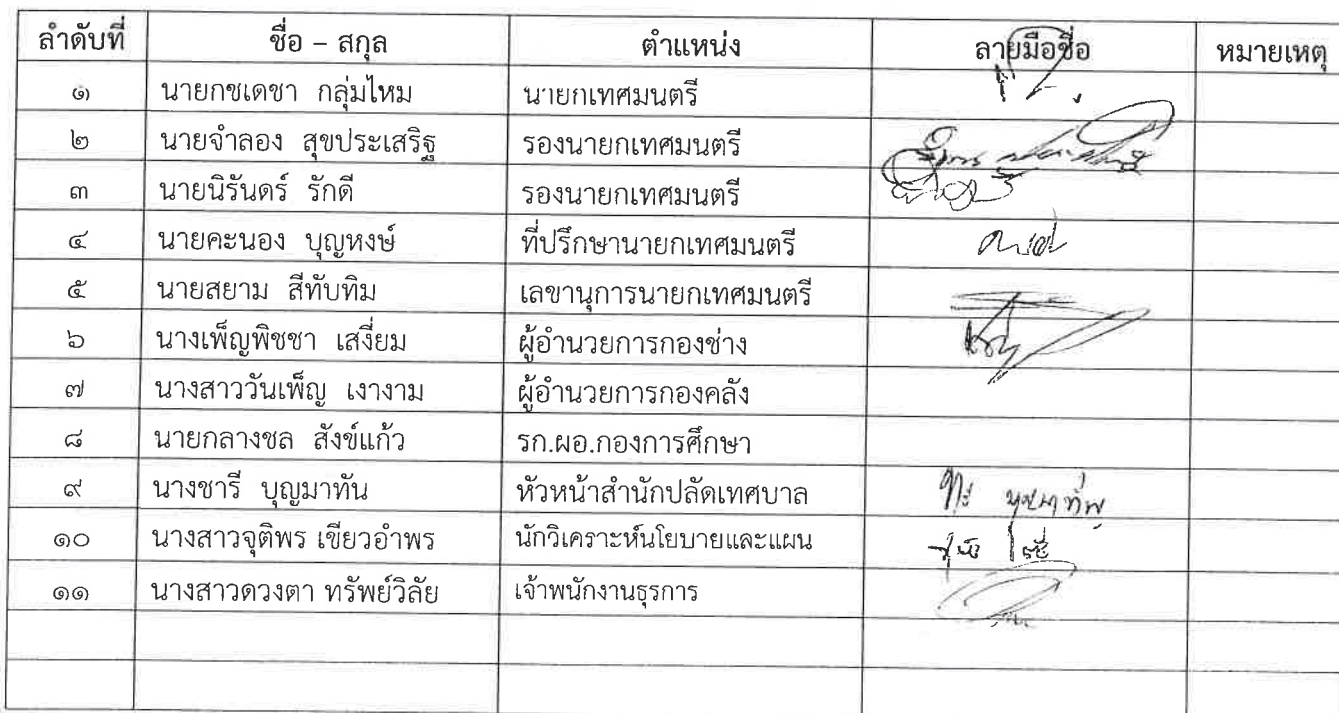 ลำดับที่ ชื่อ – สกุล ตำแหน่ง ลายมือชื่อ หมายเหตุ
๑ นายกชเดชา กลุ่มไหม นายกเทศมนตรี
๒ นายจำลอง สุขประเสริฐ รองนายกเทศมนตรี
๓ นายนิรันดร์ รักดี รองนายกเทศมนตรี
๔ นายคะนอง บุญหงษ์ ที่ปรึกษานายกเทศมนตรี
๕ นายสยาม สีทับทิม เลขานุการนายกเทศมนตรี
๖ นางเพ็ญพิชชา เสงี่ยม ผู้อำนวยการกองช่าง
๗ นางสาววันเพ็ญ เงางาม ผู้อำนวยการกองคลัง
๘ นายกลางชล สังข์แก้ว รก.ผอ.กองการศึกษา
๙ นางชารี บุญมาทัน หัวหน้าสำนักปลัดเทศบาล
๑๐ นางสาวจุติพร เขียวอำพร นักวิเคราะห์นโยบายและแผน
๑๑ นางสาวดวงตา ทรัพย์วิลัย เจ้าพนักงานธุรการ